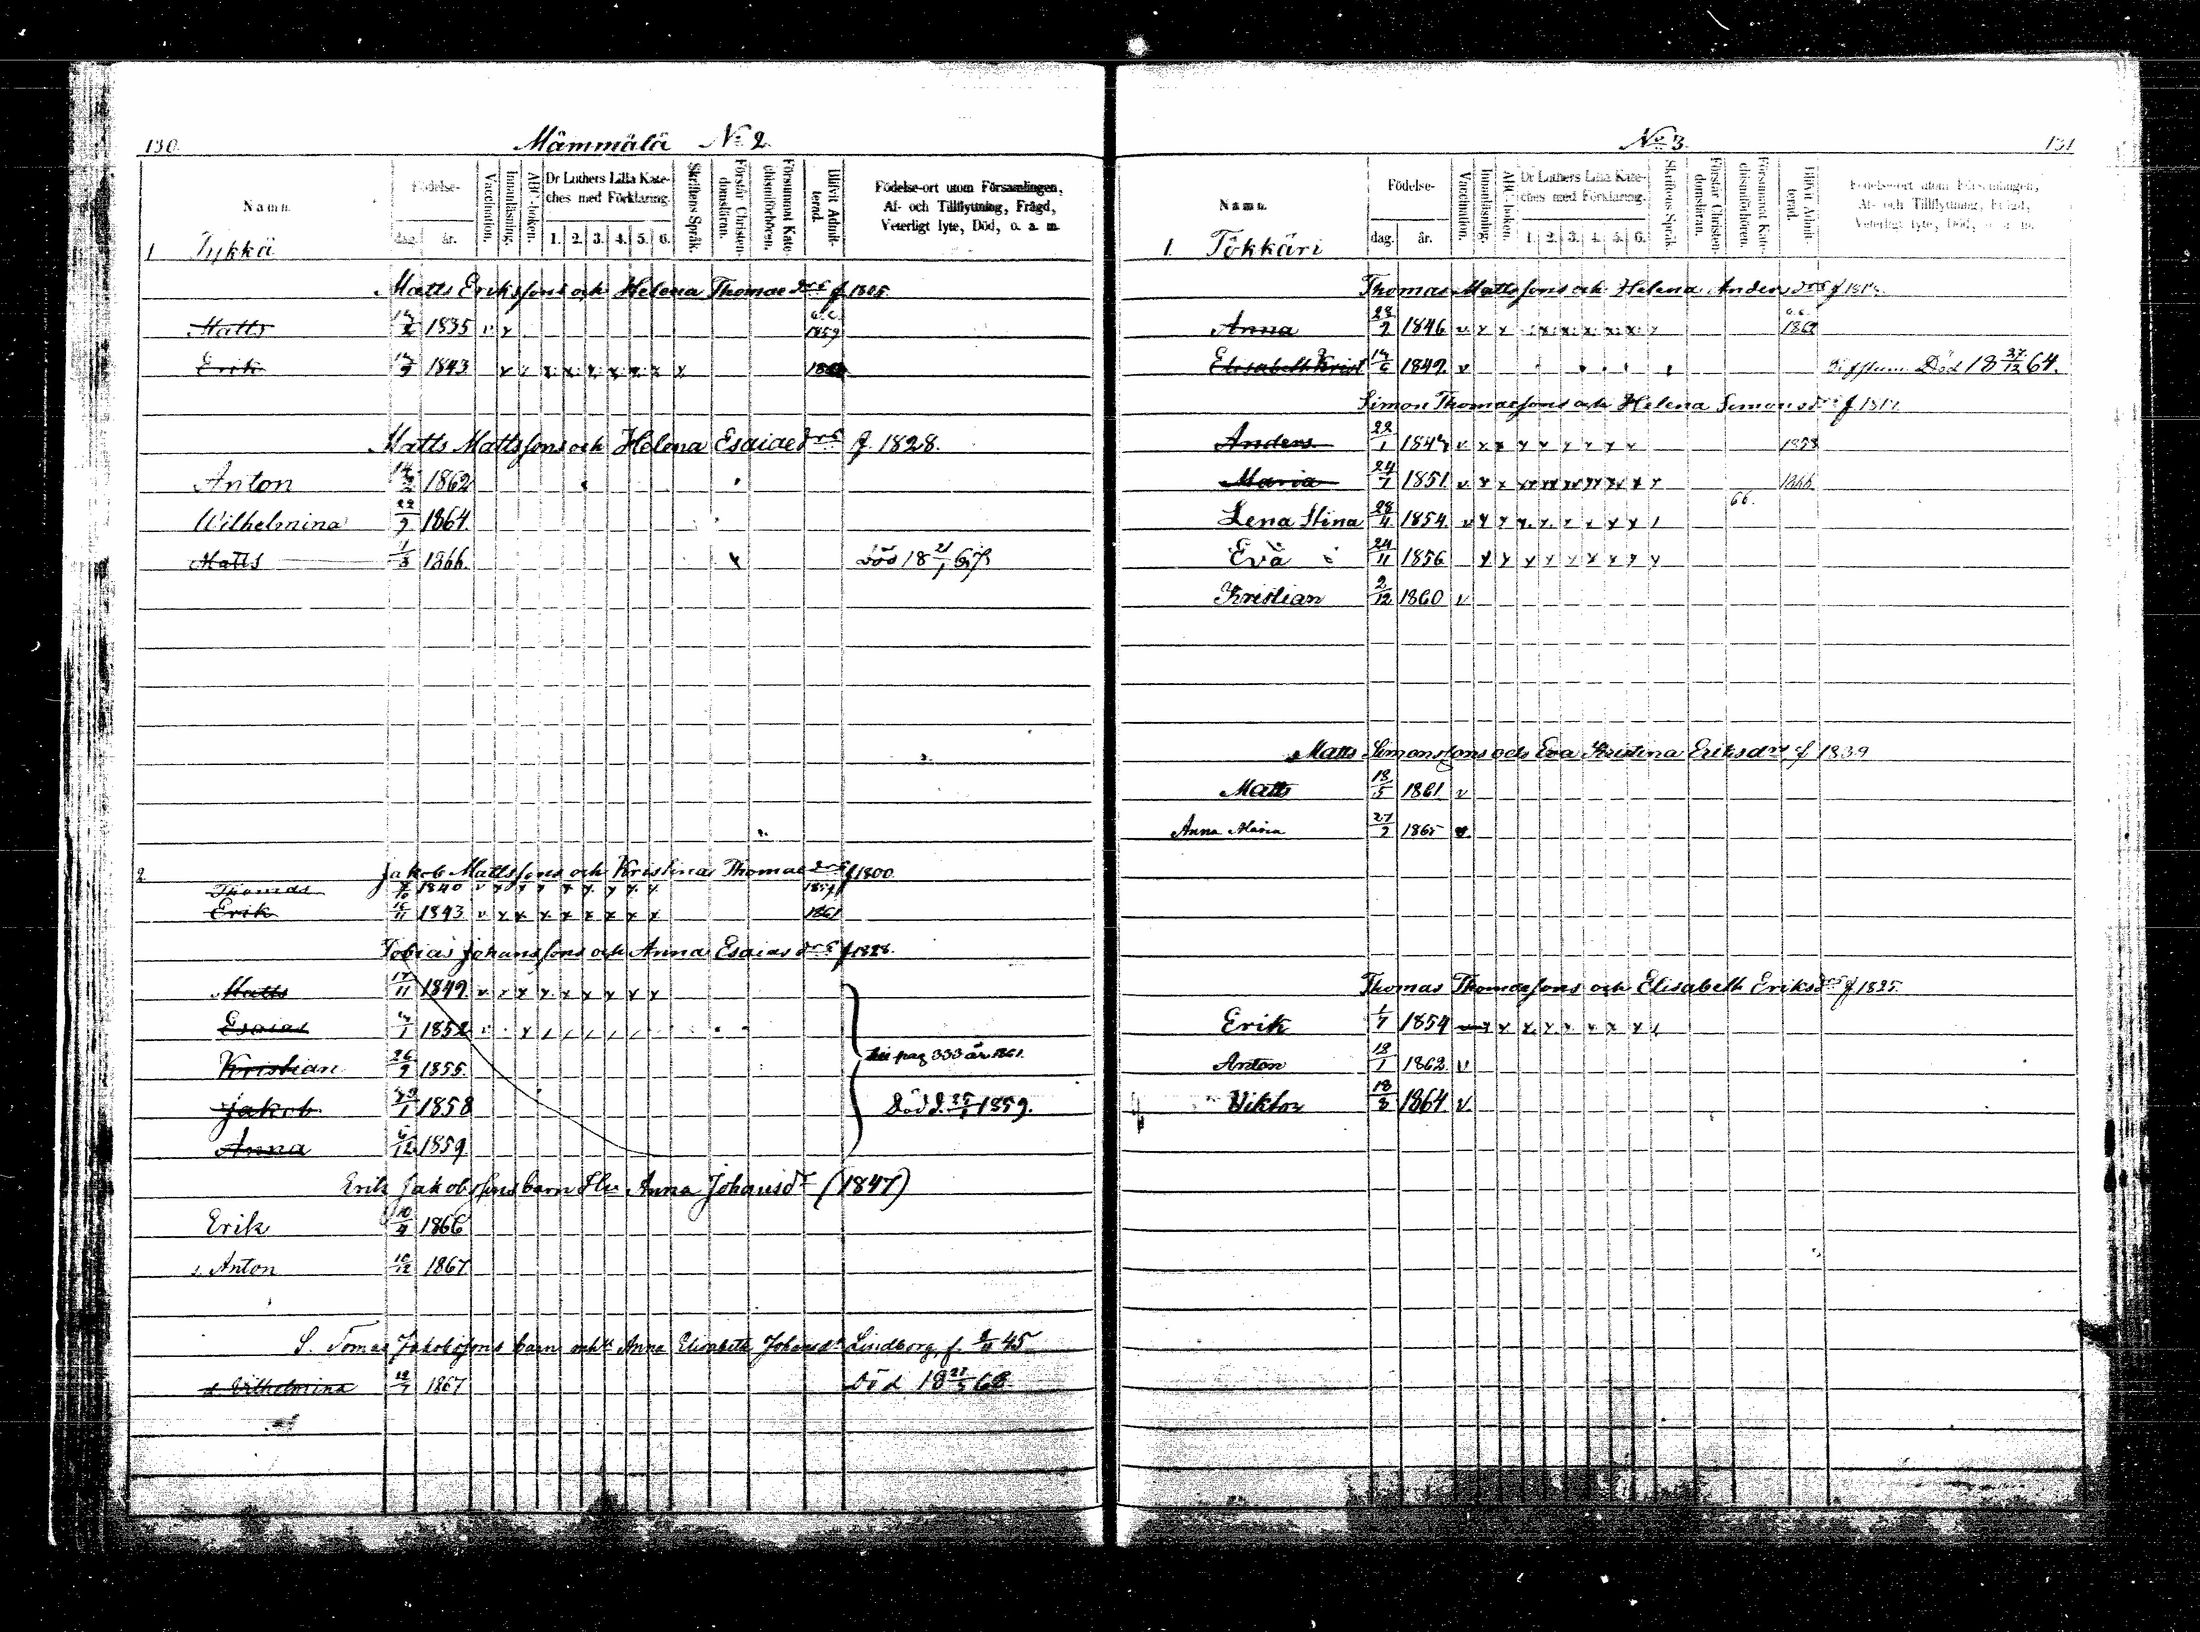 130. Mämmälä No 2
Namn.
Födelse-
dag. år.
Vaccination.
Innanläsning.
ABC-boken.
Dr Luthers Lilla Kateches med Förklaring.
1. 2. 3. 4. 5. 6.
Skriftens Språk.
Förstår Christendomsläran.
Försummat Katechismiförhören.
Blifvit Admitterad.
Födelse-ort utom Församlingen, Af- och Tillflyttning, Frägd, Veterligt lyte, Död, o. a. m.
1 Tykkä
Matts Erikssons och Helena Thomae drs f 1805.
Matts 1835 v x 1859
Erik 1843 x x x x x x x x
Matts Mattssons och Helena Esaiae drs f. 1828.
Anton 1862
Wilhelmina 22/9 1864.
Matts 1/3 1866. Död 18 21/1 67
2 Jakob Mattssons och Kristina Thomae drs f 1800.
Thomas 1840 v x x x x x x x x
Erik 16/11 1843 v x x x x x x x x 1861
Tobias Johanssons och Anna Esaias drs f 1828.
Matts 17/11 1849 v x x x x x x x x
Esaias 1852
Kristian 26/9 1855.
se pag 333 år 1861.
Jakob 1858 Död d. 25/1 1859.
Anna 1859
Erik Jakobssons barn Anna Johansdr (1847)
Erik 1866
s. Anton 1867
S. Tomas Jakobssons barn m h u Anna Elisabeth Johansdr Lindborg, f. 45
d Vilhelmina 1867 Död 18 68
No 3. 131
Namn.
Födelse-
dag. år.
Vaccination.
Innanläsning.
ABC-boken.
Dr Luthers Lilla Kateches med Förklaring.
1. 2. 3. 4. 5. 6.
Skriftens Språk.
Förstår Christendomsläran.
Försummat Katechismiförhören.
Blifvit Admitterad.
Födelse-ort utom Församlingen, Af- och Tillflyttning, Frägd, Veterligt lyte, Död, o. a. m.
1. Tökkäri
Thomas Mattssons och Helena Anders drs f
Anna 1846 v x x x x x x x x
Elisabeth Krist 1849 v Död 18 27/12 64.
Simon Thomaessons och Helena Simons drs f
Anders 22/1 v x x x x x x x x 1858
Maria 1851. v x x x x x x x x x 1866
66.
Lena Stina 1854. v x x x x x x x x
Eva 24/11 1856 x x x x x x x x x
Kristian 2/12 1860 v
Matts Simonssons och Eva Kristina Eriksdrs f 1839
Matts 18/5 1861. v
Anna Maria 1865 v
Thomas Thomaessons och Elisabeth Eriksdrs f 1825.
Erik 1854 x x x x x x x x
Anton 18/1 1862 v
Viktor 18/8 1864 v